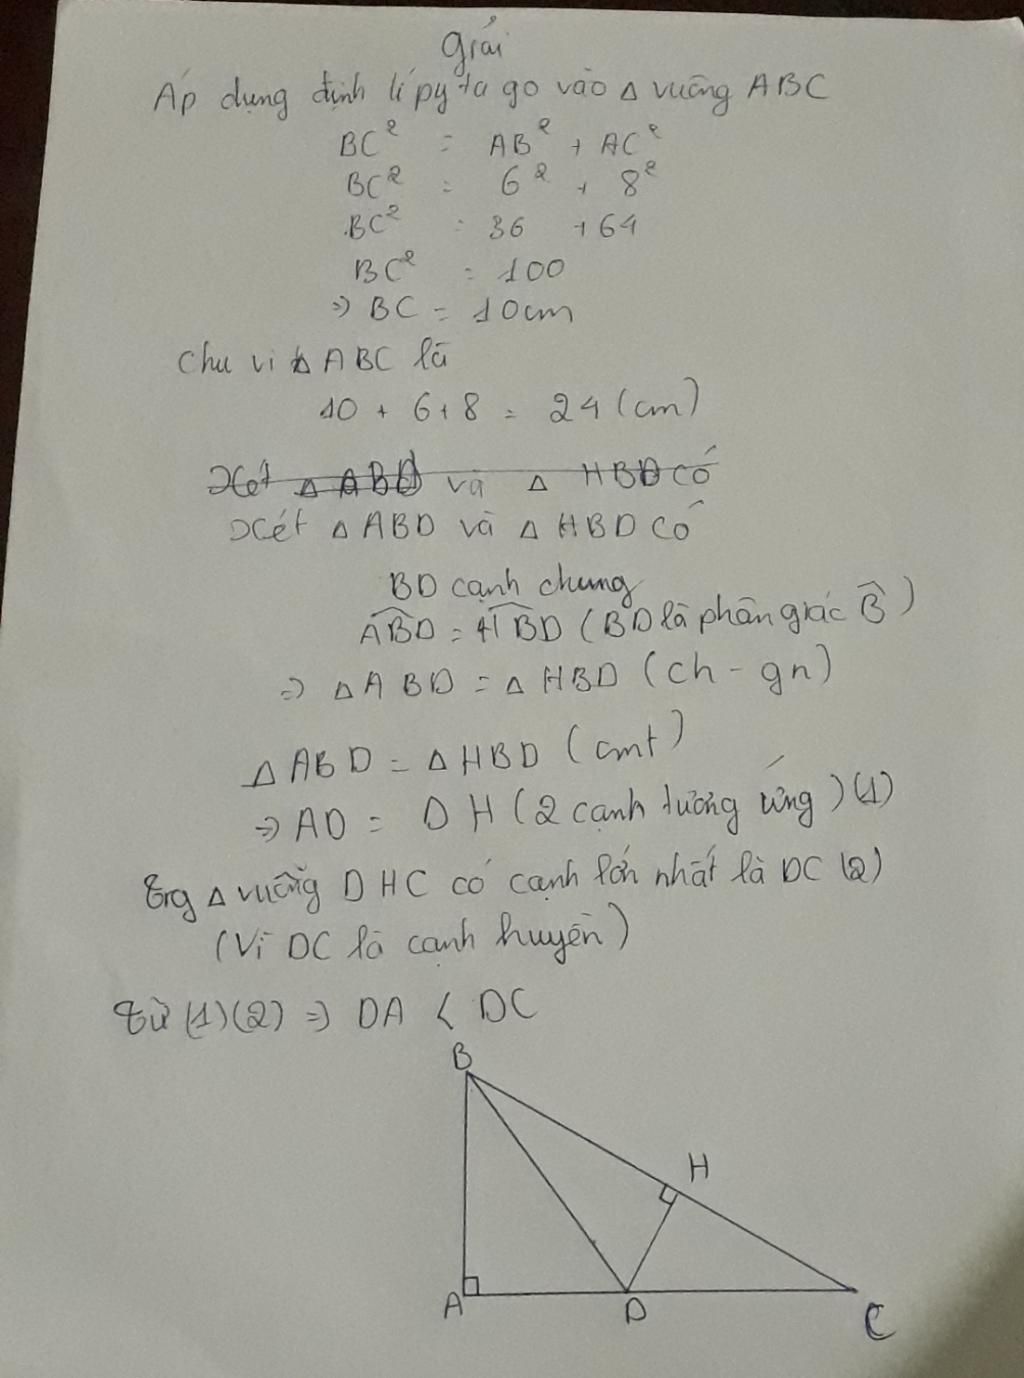 Giải
Áp dụng định lí pytago vào △ vuông ABC
BC² = AB² + AC²
BC² = 6² + 8²
BC² = 36 + 64
BC² = 100
⇒ BC = 10cm
Chu vi △ ABC là
10 + 6 + 8 = 24 (cm)
Xét △ ABD và △ HBD có
Xét △ ABD và △ HBD có
BD cạnh chung
ABD = HBD (BD là phân giác B)
⇒ △ ABD = △ HBD (ch - gn)
△ ABD = △ HBD (cmt)
⇒ AD = DH (2 cạnh tương ứng) (1)
Trg △ vuông DHC có cạnh lớn nhất là DC (2)
(Vì DC là cạnh huyền)
Từ (1)(2) ⇒ DA < DC
B
H
A
D
C